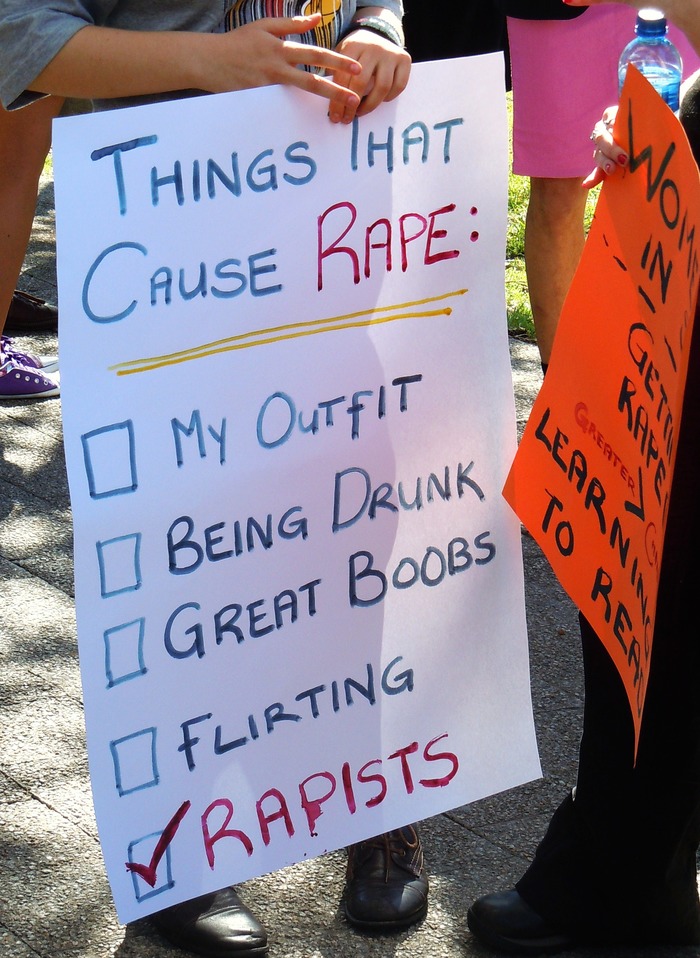 THINGS THAT
CAUSE RAPE:
MY OUTFIT
BEING DRUNK
GREAT BOOBS
FLIRTING
RAPISTS
IN
GREATER
LEARNING
TO